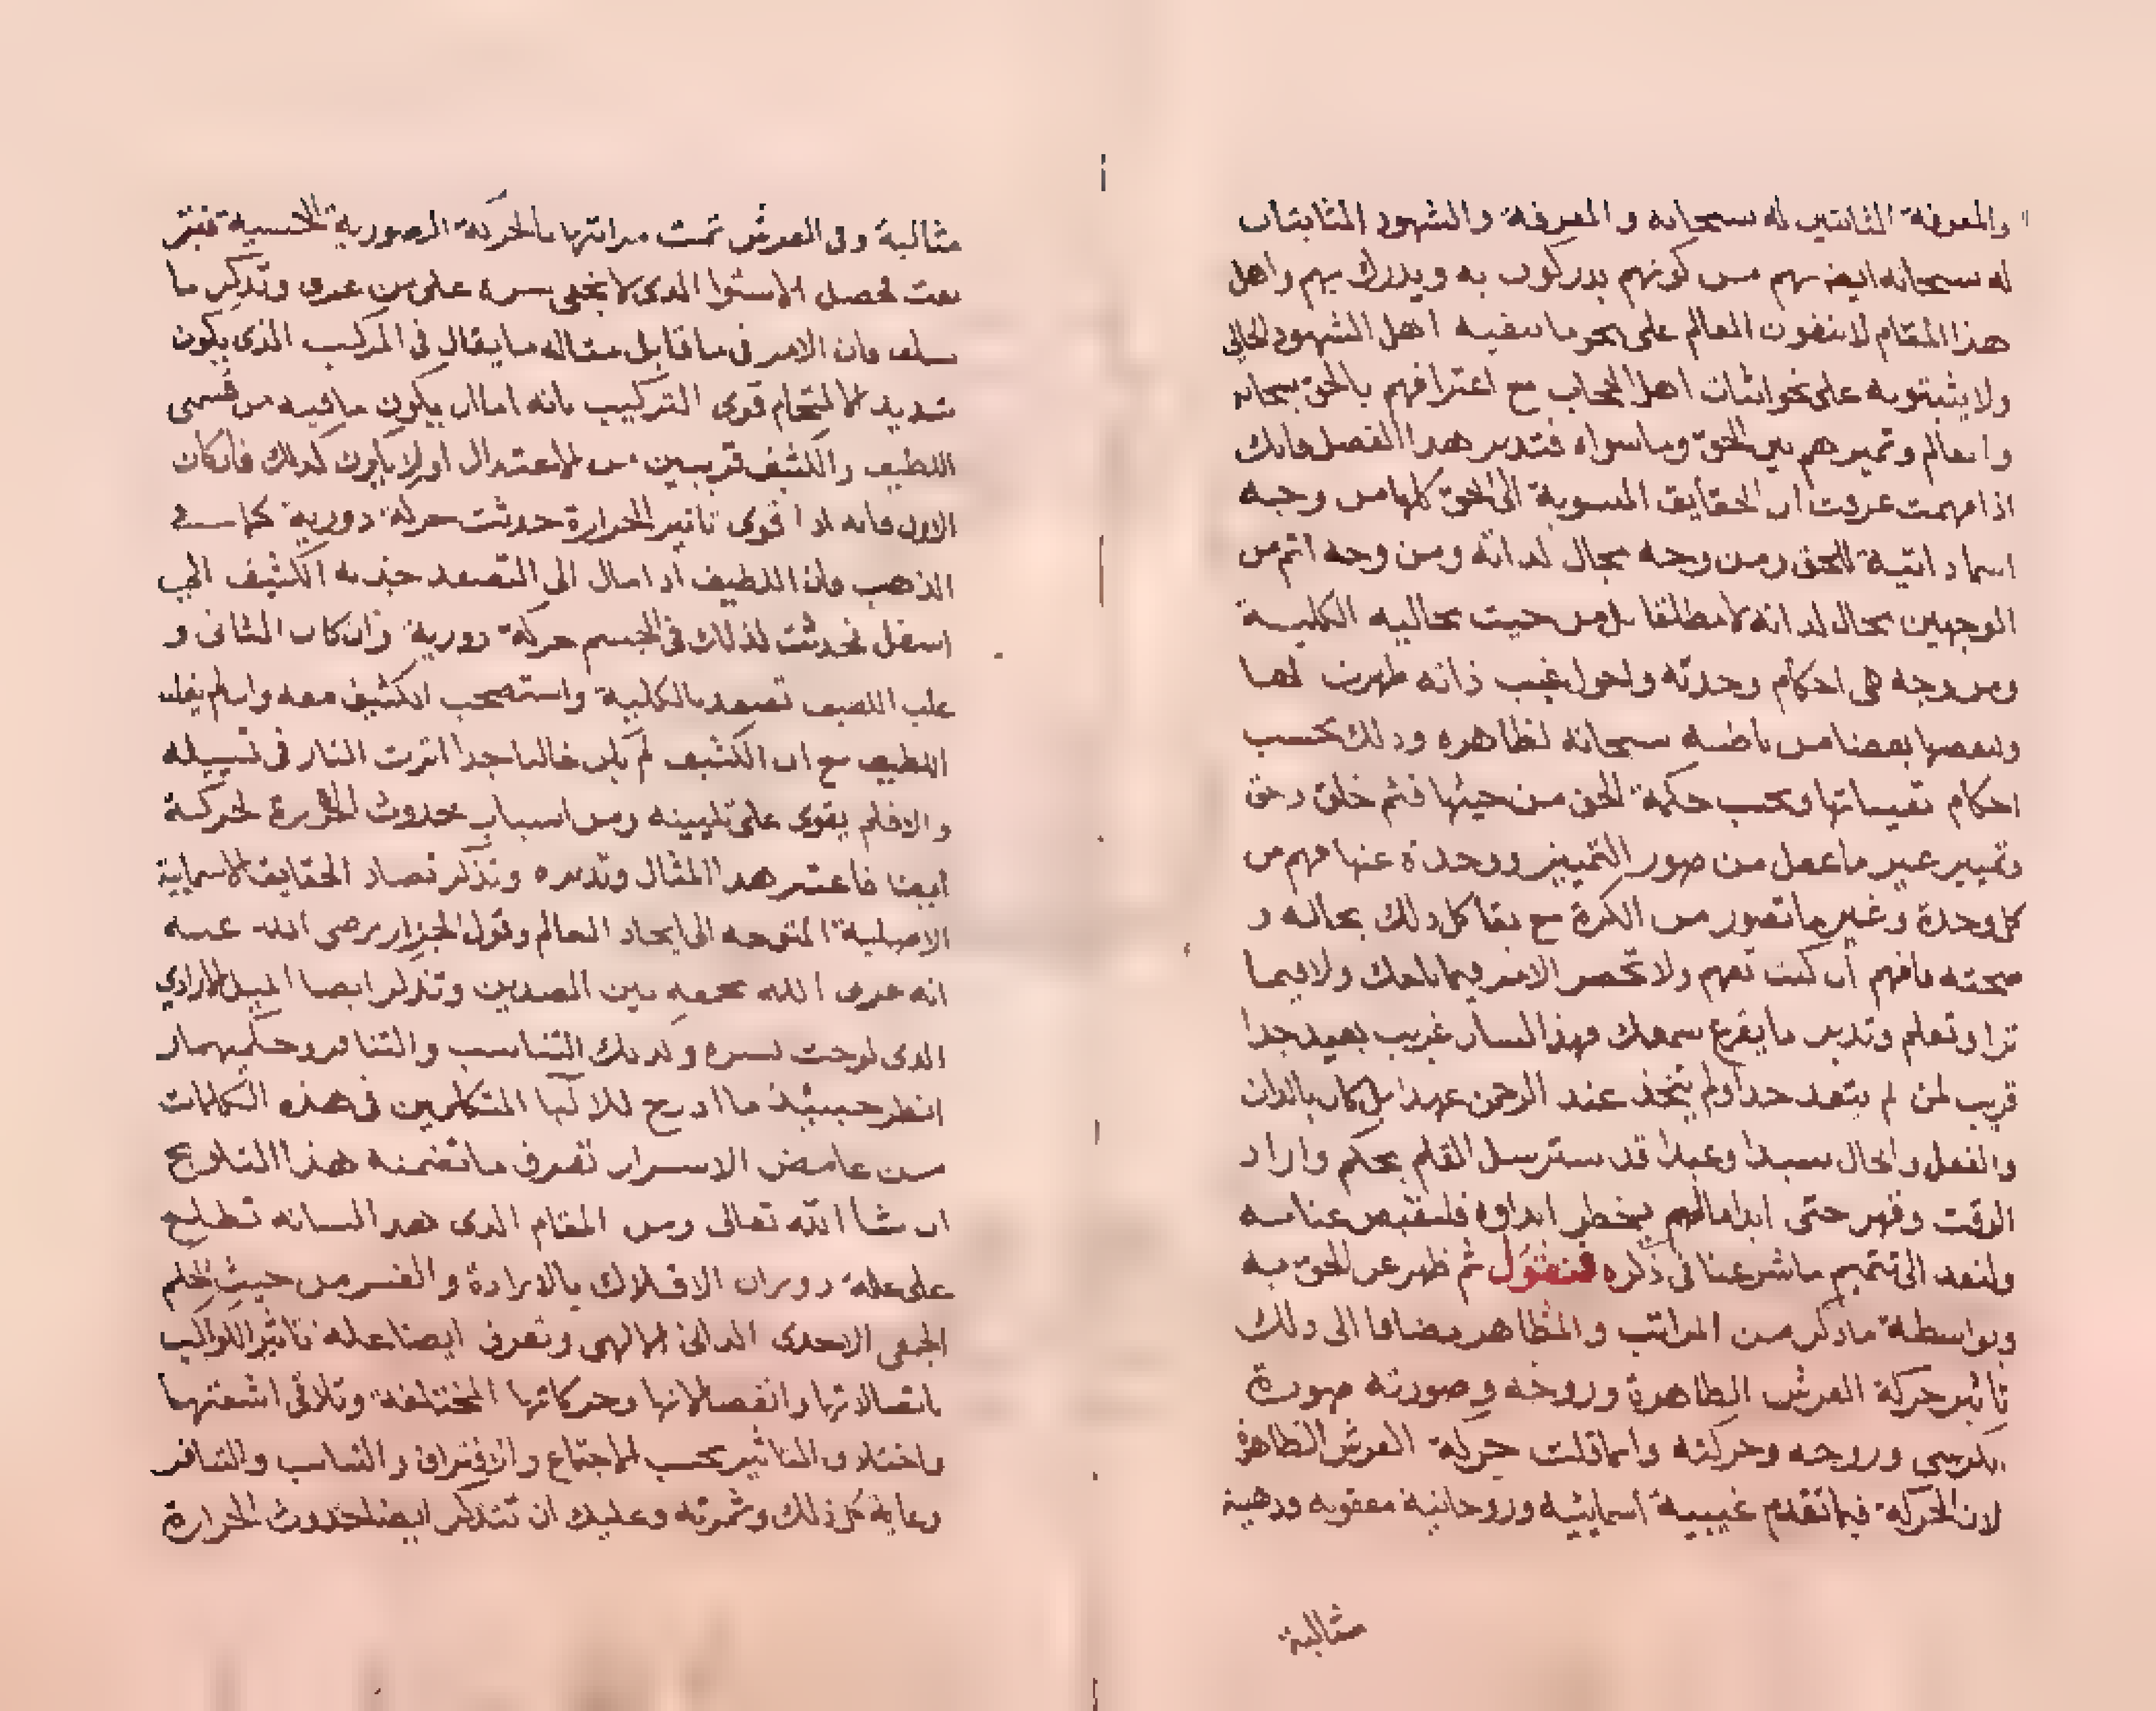 والمعرفة الثابتين له سبحانه والمعرفة والشهود الثابتان
له سبحانه ايضا بهم من كونهم يدركون به ويدرك بهم واهل
هذا المقام لا ينفون العالم على نحو ما ينفيه اهل الشهود الحالي
ولا يثبتونه على نحو اثبات اهل الحجاب مع اعترافهم بالحق سبحانه
والعالم وتميزهم بين الحق وما سواه فتدبر هذا الفصل فانك
اذا فهمت عرفت ان الحقايق المنسوبة الى الحق كلها من وجه
اسما ذاتية للحق ومن وجه مجال لذاته ومن وجه اتم من
الوجهين مجال لذاته لا مطلقا بل من حيث مجاليه الكلية
ومن وجه هي احكام وحدته واحوال غيب ذاته ظهرت لها
وبعضها بعضا من باطنه سبحانه لظاهره وذلك بحسب
احكام تعيناتها وبحسب حكمة الحق من حيثها فثم خلق وحق
وتمييز غير ما عقل من صور التمييز ووحدة عنها فهم من
كل وحدة وغير ما تصور من الكثرة مع بقا كل ذلك بحاله و
صحته فافهم ان كنت تفهم ولا تحصر الامر فيما باحك ولا فيما
ترا وتعلم وتدبر ما يقرع سمعك فهذا لسان غريب بعيد جدا
قريب لمن لم يتعد حدا ولم يتخذ عند الرحمن عهدا بل كان بالذات
والفعل والحال سيدا وعبدا قد سترسل القلم بحكم واراد
الوقت وقهر حتى ابدا مالم يخطر ابداوه فلنقبض عنانه
ولنعد الى تتميم ما شرعنا في ذكره فنقول ثم ظهر عن الحق به
وبواسطة ما ذكر من المراتب والمظاهر مضافا الى ذلك
تاثير حركة العرش الظاهرة وروحه وصورته صورة
الكرسي وروحه وحركته وانما قلت حركة العرش الظاهرة
لان الحركة فيما تقدم غيبية اسمايئه وروحانية معقوبه وذهبية
مثالية
مثالية وفي العرش تمت مراتبها بالحركة الصورية الحسية فتبر
بعت لحصل الاستوا الذى لا يخفى سره على من عرف وتذكر ما
سلف فان الامر في ما قابل مثاله ما يقال في المركب الذى يكون
شديد الالتحام قوى التركيب بانه اما ان يكون ما فيه من قسمى
اللطيف والكثيف قريبين من الاعتدال اولا يكون كذلك فان كان
الاول فانه اذا قوى تاثير الحرارة حدثت حركة دورية كما في
الذهب فان اللطيف اذا مال الى التصعد جذبه الكثيف الى
اسفل فحدثت لذلك في الجسم حركة دورية وان كان الثاني و
غلب اللطيف تصعد بالكلية واستصحب الكثيف معه وان لم يغلب
اللطيف مع ان الكثيف لم يكن غالبا جدا اثرت النار في تسييله
والا فلم يقوى على تليينه ومن اسباب حدوث الحرارة الحركة
ايضا فاعتبر هذا المثال وتدبره وتذكر تضاد الحقايق الاسمايية
الاصلية المتوجه الى ايجاد العالم وقول الخراز رضى الله عنه
انه عرف الله بجمعه بين الضدين وتذكر ايضا الميل الارادي
الذى لوحت بسره وكذلك التناسب والتنافر وحكميهما و
انظر حينيذ ما ادرج للالبا المشكلرين في هذه الكلمات
من غامض الاسرار تعرف ما تضمنه هذا التلاوع
ان شا الله تعالى ومن المقام الذى هذا لسانه تطلع
على علة دوران الافلاك بالارادة والقسر من حيث الحكم
الجمعي الاحدى الذاتي الالهي وتعرف ايضا علة تاثير الكواكب
باتصالاتها وانفصالاتها وحركاتها المختلفة وتلاقى اشعتها
واختلاف التاثير بحسب الاجتماع والافتراق والتناسب والتنافر
وغاية كل ذلك وثمرته وعليك ان تتذكر ايضا حدوث الحرارة